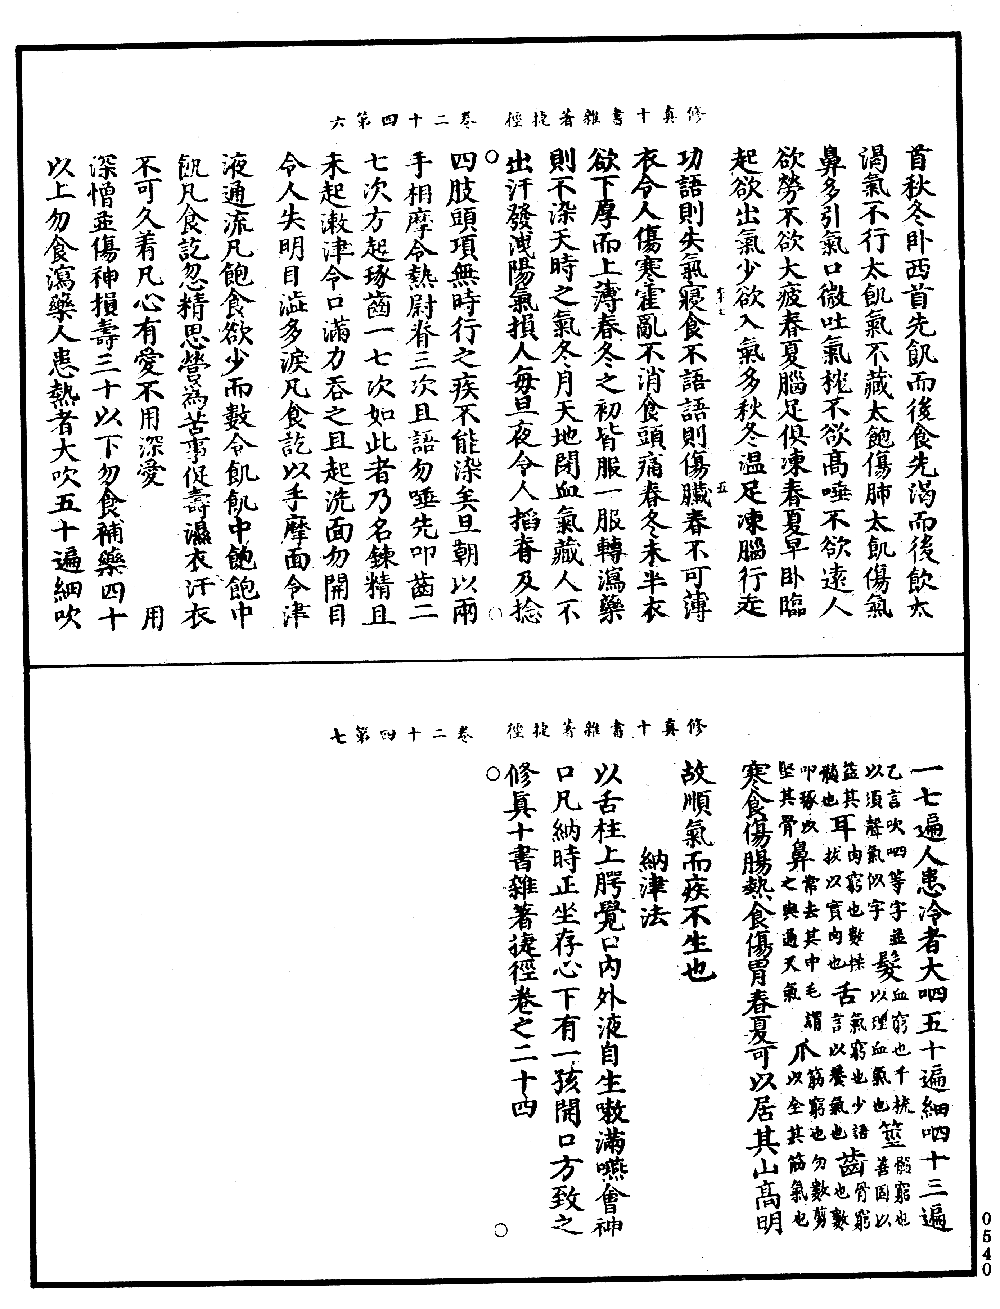 修真十書雜著捷徑　卷二十四第六
首秋冬卧西首先飢而後食先渴而後飲太
渴氣不行太飢氣不藏太飽傷肺太飢傷氣
鼻多引氣口微吐氣枕不欲高唾不欲遠人
欲勞不欲大疲春夏腦足俱凍春夏早卧臨
起欲出氣少欲入氣多秋冬温足凍腦行走
功語則失氣寢食不語語則傷臟春不可薄
衣令人傷寒霍亂不消食頭痛春冬未半衣
欲下厚而上薄春冬之初皆服一服轉瀉藥
則不染天時之氣冬月天地閉血氣藏人不
出汗發洩陽氣損人每旦夜令人搯脊及捻
四肢頭項無時行之疾不能染矣旦朝以兩
手相摩令熱尉脊三次且語勿唾先叩齒二
七次方起琢齒一七次如此者乃名鍊精且
未起漱津令口滿力吞之且起洗面勿開目
令人失明目澁多淚凡食訖以手摩面令津
液通流凡飽食欲少而數令飢飢中飽飽中
飢凡食訖忽精思營為苦事促壽濕衣汗衣
不可久著凡心有愛不用深愛　用
深憎並傷神損壽三十以下勿食補藥四十
以上勿食瀉藥人患熱者大吹五十遍細吹
修真十書雜著捷徑　卷二十四第七
一七遍人患冷者大呬五十遍細呬四十三遍
乙言吹呬等字並以須聲氣似字　髮血窮也千梳以理血氣也　䇲髓窮也善固以益其髓也　耳肉窮也數採拔以實肉也　舌氣窮也少語言以養氣也　齒骨窮也數叩琢以堅其骨　鼻常去其中毛謂之與通天氣　爪筋窮也勿數剪以全其筋氣也
寒食傷腸熱食傷胃春夏可以居其山高明
故順氣而疾不生也
納津法
以舌柱上腭覺口内外液自生嗽滿嚥會神
口凡納時正坐存心下有一孩開口方致之
修真十書雜著捷徑卷之二十四
0540